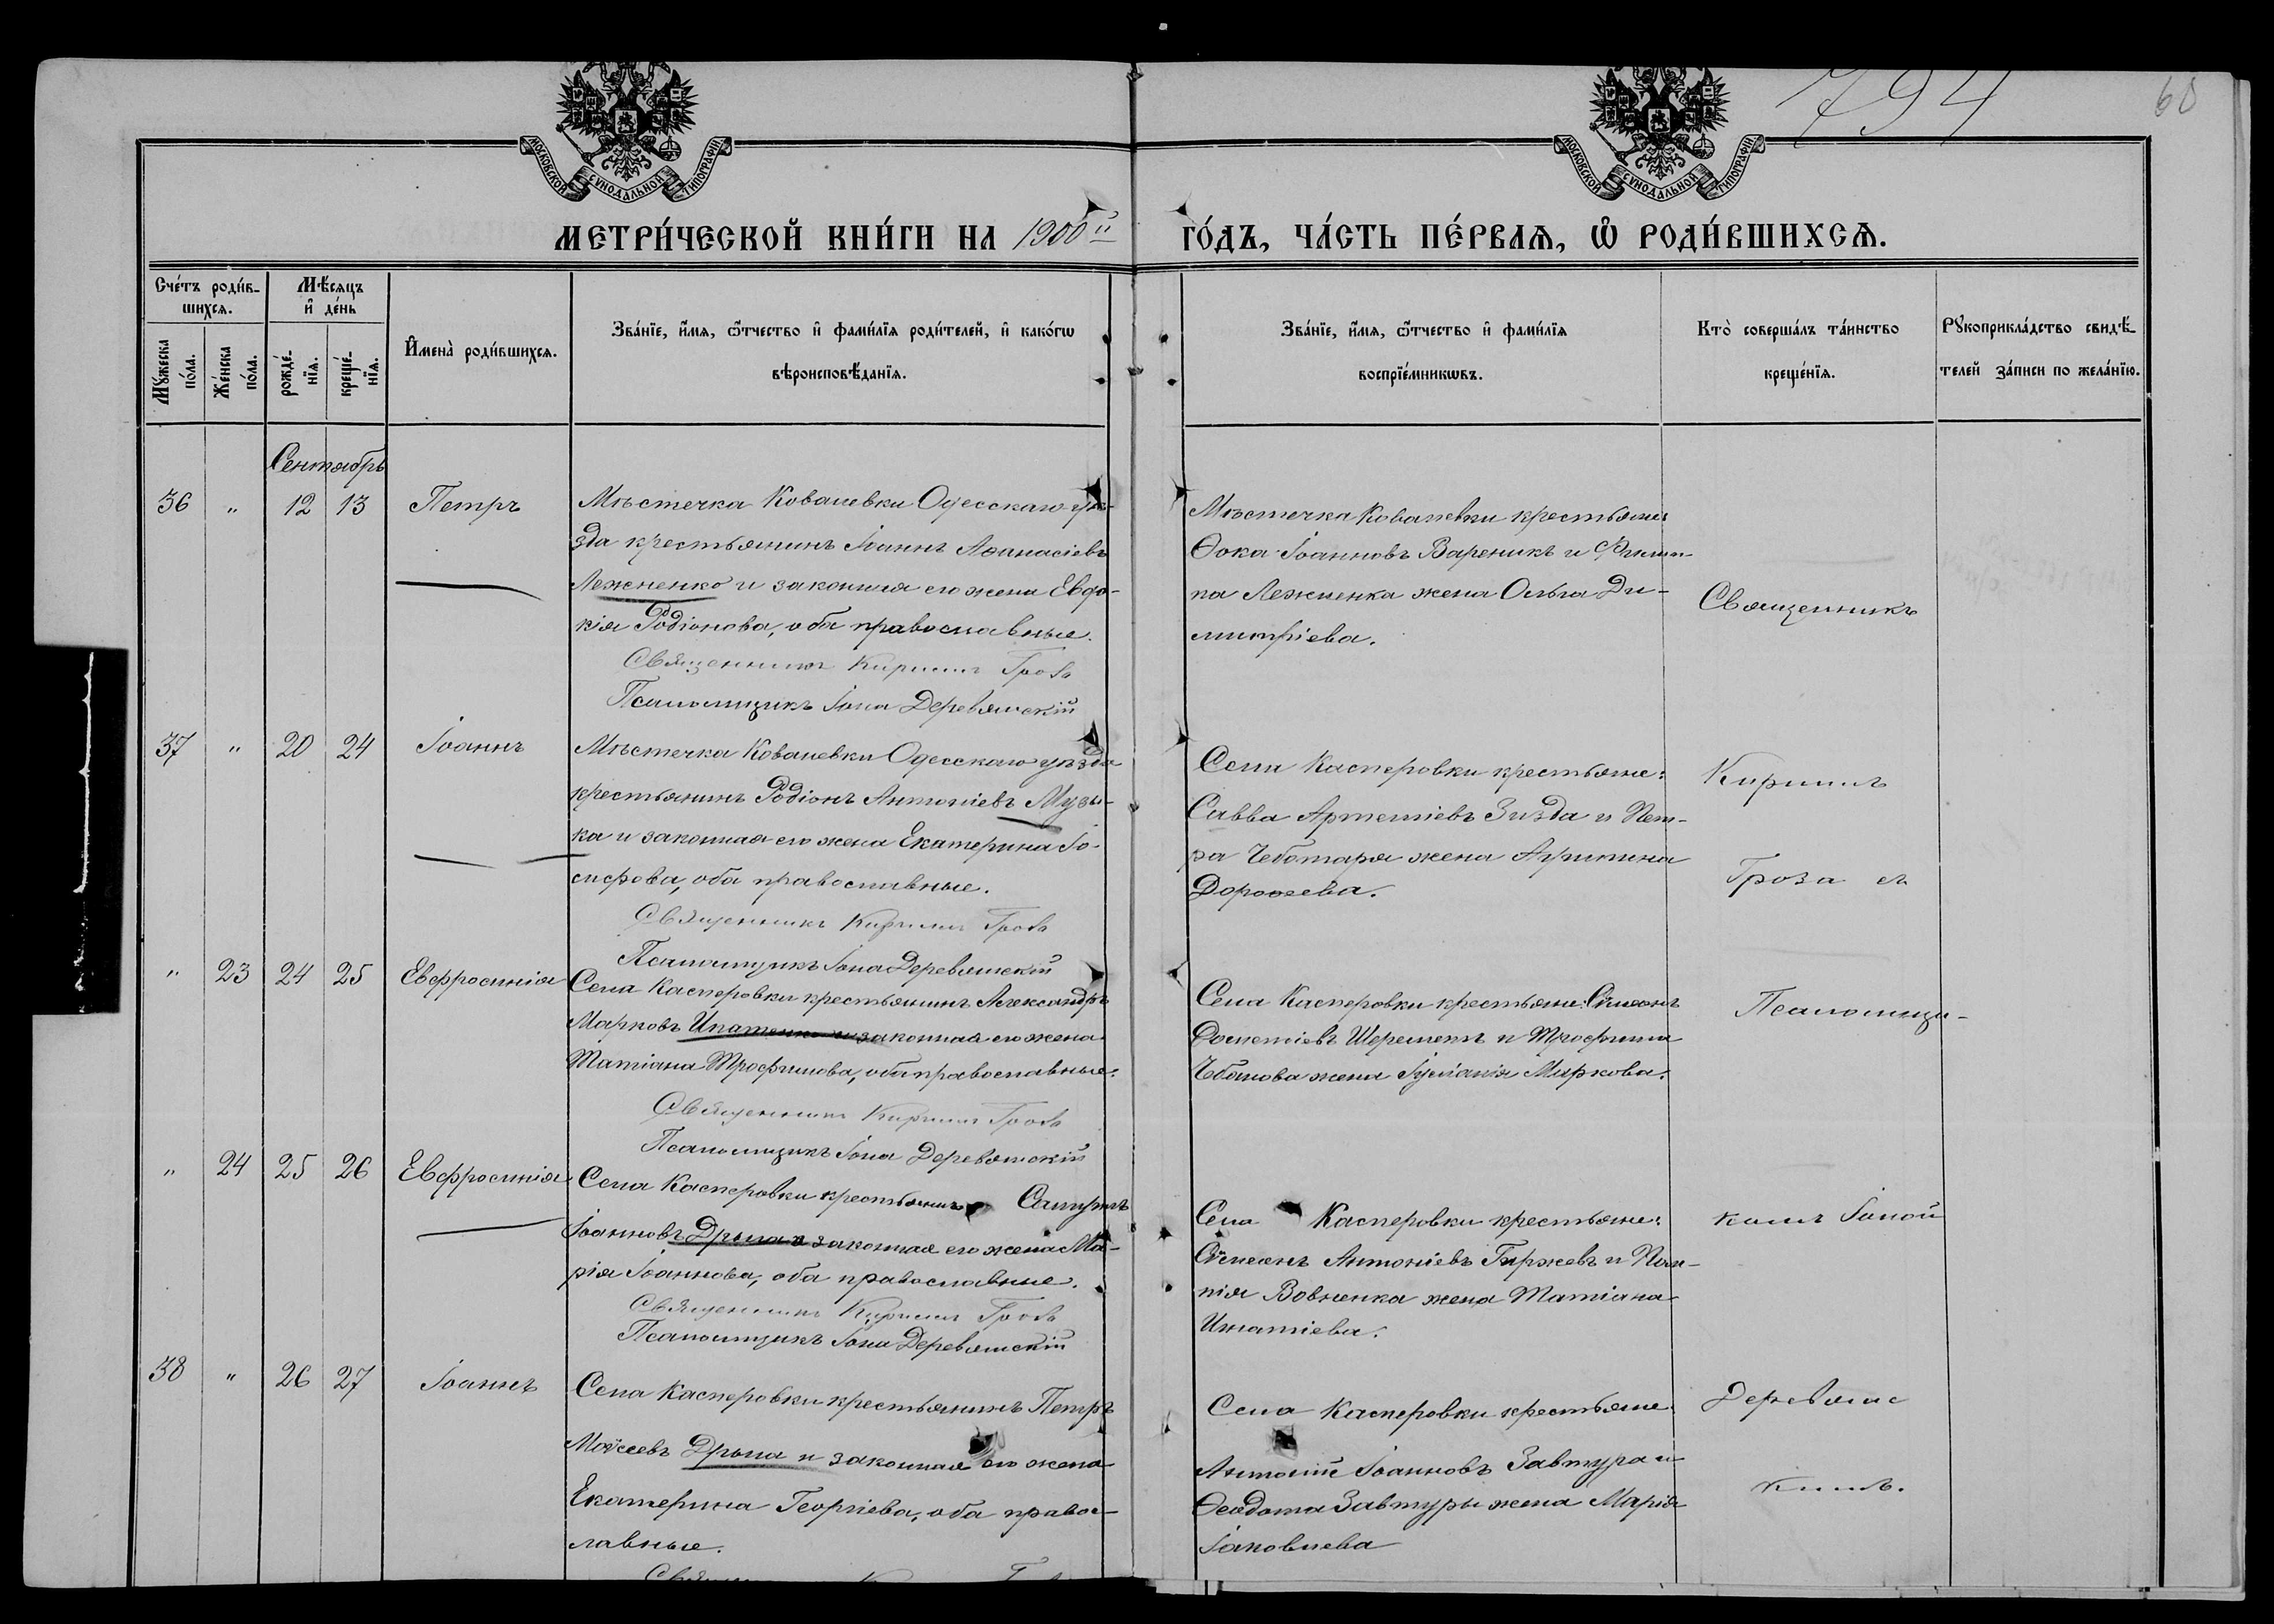 794
60
МОСКОВСКОЙ СѴНОДАЛЬНОЙ ТИПОГРАФІИ
МОСКОВСКОЙ СѴНОДАЛЬНОЙ ТИПОГРАФІИ
МЕТРИ́ЧЕСКОЙ КНИ́ГИ НА 1900й ГО́ДЪ, ЧА́СТЬ ПЕ́РВАѦ, Ѡ҆ РОДИ́ВШИХСѦ.
Сче́тъ роди́в-
шихсѧ.
Мѣ́сѧцъ
и҆ де́нь
Мꙋ́жеска
по́ла.
Же́нска
по́ла.
рожде́-
нїѧ.
креще́-
нїѧ.
И҆мена̀ роди́вшихсѧ.
Зва́нїе, и҆́мѧ, ѻ҆́тчество и҆ фами́лїѧ роди́телей, и҆ како́гѡ
вѣроисповѣ́данїѧ.
Зва́нїе, и҆́мѧ, ѻ҆́тчество и҆ фами́лїѧ
воспрїе́мникѡвъ.
Кто̀ соверша́лъ та́инство
креще́нїѧ.
Рꙋкоприкла́дство свидѣ́-
телей за́писи по жела́нїю.
Сентябрь
36 " 12 13 Петръ
Мѣстечка Ковалевки Одесскаго уѣ-
зда крестьянинъ Іоаннъ Аѳанасіевъ
Лежненко и законная его жена Евдо-
кія Родіонова, оба православные.
Священникъ Кириллъ Гроза
Псаломщикъ Іона Деревянскій
Мѣстечка Ковалевки крестьяне:
Ѳока Іоанновъ Вареникъ и Филип-
па Лежненка жена Ольга Ди-
митріева.
37 " 20 24 Іоаннъ
Мѣстечка Ковалевки Одесскаго уѣзда
крестьянинъ Родіонъ Антоніевъ Музы-
ка и законная его жена Екатерина Іо-
сифова, оба православные.
Священникъ Кириллъ Гроза
Псаломщикъ Іона Деревянскій
Села Касперовки крестьяне:
Савва Артеміевъ Зизда и Пет-
ра Чеботаря жена Агрипина
Дороѳеева.
" 23 24 25 Евфросинія
Села Касперовки крестьянинъ Александръ
Марковъ Ипатенко и законная его жена
Татіана Трофимова, оба православные.
Священникъ Кириллъ Гроза
Псаломщикъ Іона Деревянскій
Села Касперовки крестьяне: Сѵмеонъ
Шереметъ и Трофима
жена Іуліанія Маркова.
" 24 25 26 Евфросинія
Села Касперовки крестьянинъ
Іоанновъ Дрыга и законная его жена Ма-
рія Іоаннова, оба православные.
Священникъ Кириллъ Гроза
Псаломщикъ Іона Деревянскій
Села Касперовки крестьяне:
Сѵмеонъ Антоніевъ Гиржевъ и
Вовненка жена Татіана
Игнатіева.
38 " 26 27 Іоаннъ
Села Касперовки крестьянинъ Петръ
Моѵсеевъ Дрыга и законная его жена
Екатерина Георгіева, оба право-
славные.
Села Касперовки крестьяне:
Антоній Іоанновъ Завтура и
Ѳеодота Завтуры жена Марія
Іаковлева
Священникъ
Кириллъ
Гроза съ
Псаломщи-
комъ Іоной
Деревянс
кимъ.